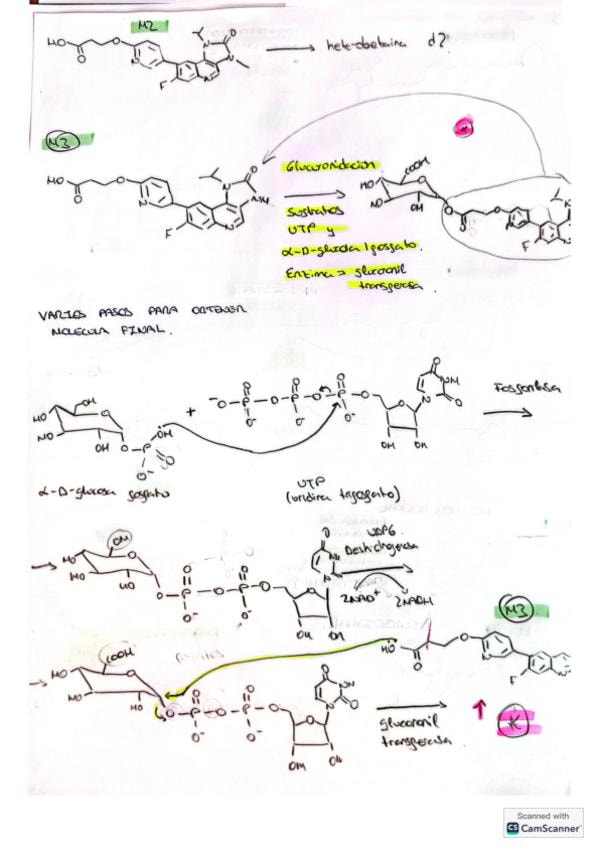 M2
HO
O
O
N
F
N
O
N
N
→ hete-obetaina d?
M3
HO
O
O
N
F
N
O
NH
N
Glucuronidacion
Sustratos
UTP y
α-D-glucosa 1 fosfato.
Enzima => glucoronil
transferasa.
COOH
HO
HO
O
OH
O
O
O
N
F
VARIOS PASOS PARA OBTENER
MOLECULA FINAL.
OH
HO
HO
O
OH
O-P-OH
O
O⁻
+
⁻O-P-O-P-O-P-O
O
O
O
O⁻
O⁻
O⁻
O
NH
N
O
O
OH
OH
Fosforilasa
α-D-glucosa fosfato
UTP
(uridina trifosfato)
OH
HO
HO
O
HO
O-P-O-P-O
O
O
O⁻
O⁻
O
NH
N
O
OH
OH
UDPG
Deshidrogenasa
2NAD⁺
2NADH
M3
HO
O
O
N
F
COOH
HO
HO
O
HO
O-P-O-P-O
O
O
O⁻
O⁻
O
N
O
O
OH
OH
glucoronil
transferasa
Scanned with
CS CamScanner